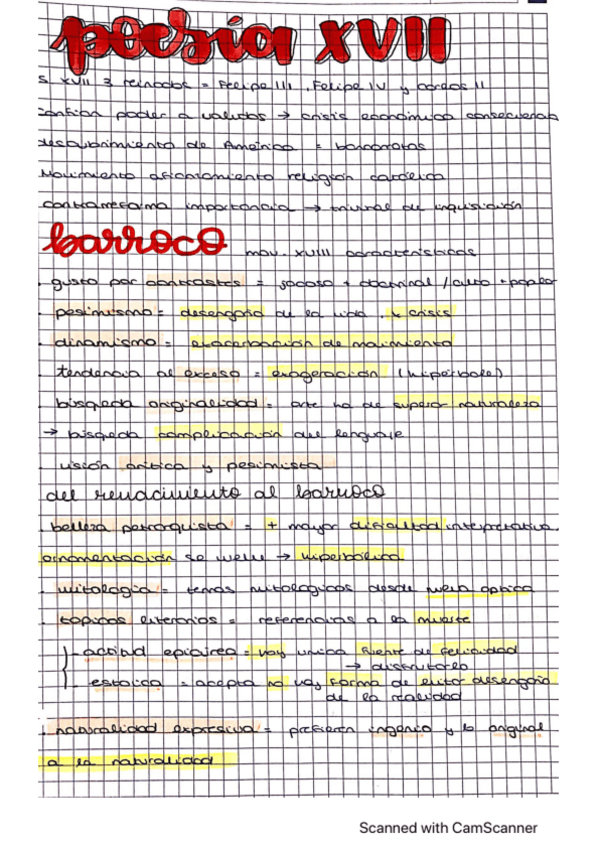 poesía XVII
S. XVII 3 reinados = Felipe III, Felipe IV y Carlos II
confian poder a validos → crisis económica consecuencia
descubrimiento de América = bancarrotas
Movimiento afianzamiento religión católica
contrarreforma importancia → tribunal de inquisición
barroco mov. XVIII características
. gusto por contrastes = jocoso + doctrinal / culto + popular
. pesimismo = desengaño de la vida, x crisis
. dinamismo = exacerbación de movimiento
. tendencia al exceso = exageración (hipérbole)
. búsqueda originalidad = arte ha de superar naturaleza
→ búsqueda complicación del lenguaje
. visión crítica y pesimista
del renacimiento al barroco
. belleza petrarquista = + mayor dificultad interpretativa
ornamentación se vuelve → hiperbólica
. mitología = temas mitológicos desde nueva óptica
. tópicos literarios = referencias a la muerte
- actitud epicúrea = vay unica fuente de felicidad
→ disfrutarlo
- estoica = acepta no vay forma de evitar desengaño
de la realidad
. naturalidad expresiva = prefieren ingenio y lo original
a la naturalidad
Scanned with CamScanner